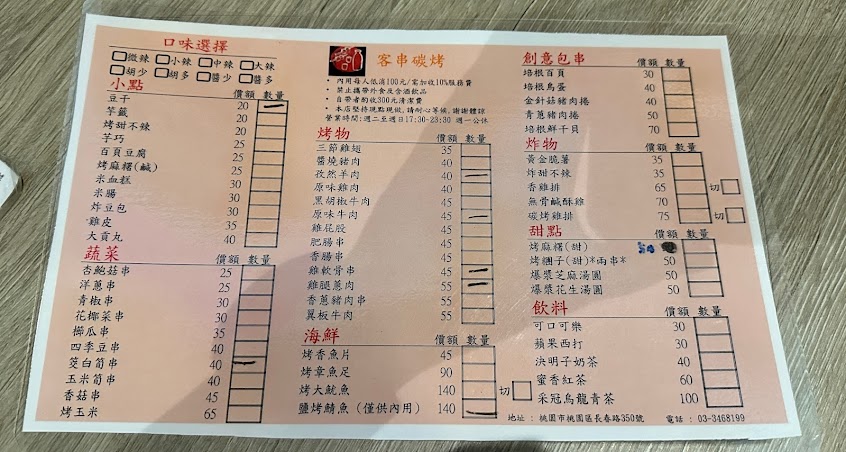 口味選擇
微辣 小辣 中辣 大辣
胡少 胡多 醬少 醬多
小點 價額 數量
豆干 20
芋籤 20
烤甜不辣 20
芋巧 25
百頁豆腐 25
烤麻糬(鹹) 25
米血糕 30
米腸 30
炸豆包 30
雞皮 35
大貢丸 40
蔬菜 價額 數量
杏鮑菇串 25
洋蔥串 25
青椒串 30
花椰菜串 30
櫛瓜串 40
四季豆串 40
筊白筍串 40
玉米筍串 40
香菇串 45
烤玉米 65
客串碳烤
• 內用每人低消100元/需加收10%服務費
• 禁止攜帶外食及含酒飲品
• 自帶者酌收300元清潔費
• 本店堅持現點現做,請耐心等候,謝謝體諒
營業時間:週二至週日17:30-23:30 週一公休
烤物 價額 數量
三節雞翅 35
醬燒豬肉 40
孜然羊肉 40
原味雞肉 40
黑胡椒牛肉 45
原味牛肉 45
雞屁股 45
肥腸串 45
香腸串 45
雞軟骨串 45
雞腿蔥肉 55
香蔥豬肉串 55
翼板牛肉 55
海鮮 價額 數量
烤香魚片 45
烤章魚足 90
烤大魷魚 140 切
鹽烤鯖魚 (僅供內用) 140
創意包串 價額 數量
培根百頁 30
培根鳥蛋 40
金針菇豬肉捲 40
青蔥豬肉捲 50
培根鮮干貝 70
炸物 價額 數量
黃金脆薯 35
炸甜不辣 35
香雞排 65 切
無骨鹹酥雞 70
碳烤雞排 75 切
甜點 價額 數量
烤麻糬(甜)
烤糰子(甜)*兩串* 50
爆漿芝麻湯圓 50
爆漿花生湯圓 50
飲料 價額 數量
可口可樂 30
蘋果西打 30
決明子奶茶 40
蜜香紅茶 60
采冠烏龍青茶 100
地址 : 桃園市桃園區長春路350號 電話 : 03-3468199